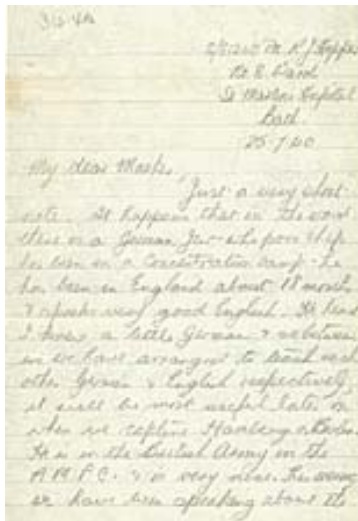 My dear Mother,
Just a very short
note. It happens that in the ward
there is a German Jew - who poor chap
has been in a Concentration camp - he
has been in England about 18 months
& speaks very good English.
I know a little German &
we have arranged to teach each
other German & English respectively,
it will be most useful later on
when we capture Hamburg
He is in the British Army in the
A.M.P.C. & is very nice. This evening
we have been speaking about the